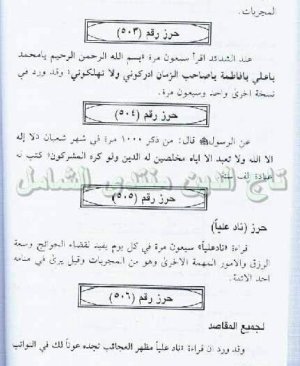 المجربات.
حرز رقم (٥٠٣)
عند الشدائد اقرأ سبعون مرة (بسم الله الرحمن الرحيم يامحمد
ياعلي يافاطمة ياصاحب الزمان ادركوني ولا تهلكوني) وقد ورد في
نسخة اخرى واحد وسبعون مرة.
حرز رقم (٥٠٤)
عن الرسولﷺ قال: من ذكر ١٠٠٠ مرة في شهر شعبان (لا إله
الا الله ولا نعبد الا اياه مخلصين له الدين ولو كره المشركون) كتب له
عبادة الف سنة.
تاج الدين منتدى الشامل
حرز رقم (٥٠٥)
حرز (ناد علياً)
قراءة (نادعلياً) سبعون مرة في كل يوم يفيد لقضاء الحوائج وسعة
الرزق والامور المهمة الاخرى وهو من المجربات وقيل يرى في منامه
احد الائمة.
حرز رقم (٥٠٦)
لجميع المقاصد
وقد ورد ان قراءة (ناد علياً مظهر العجائب تجده عوناً لك في النوائب